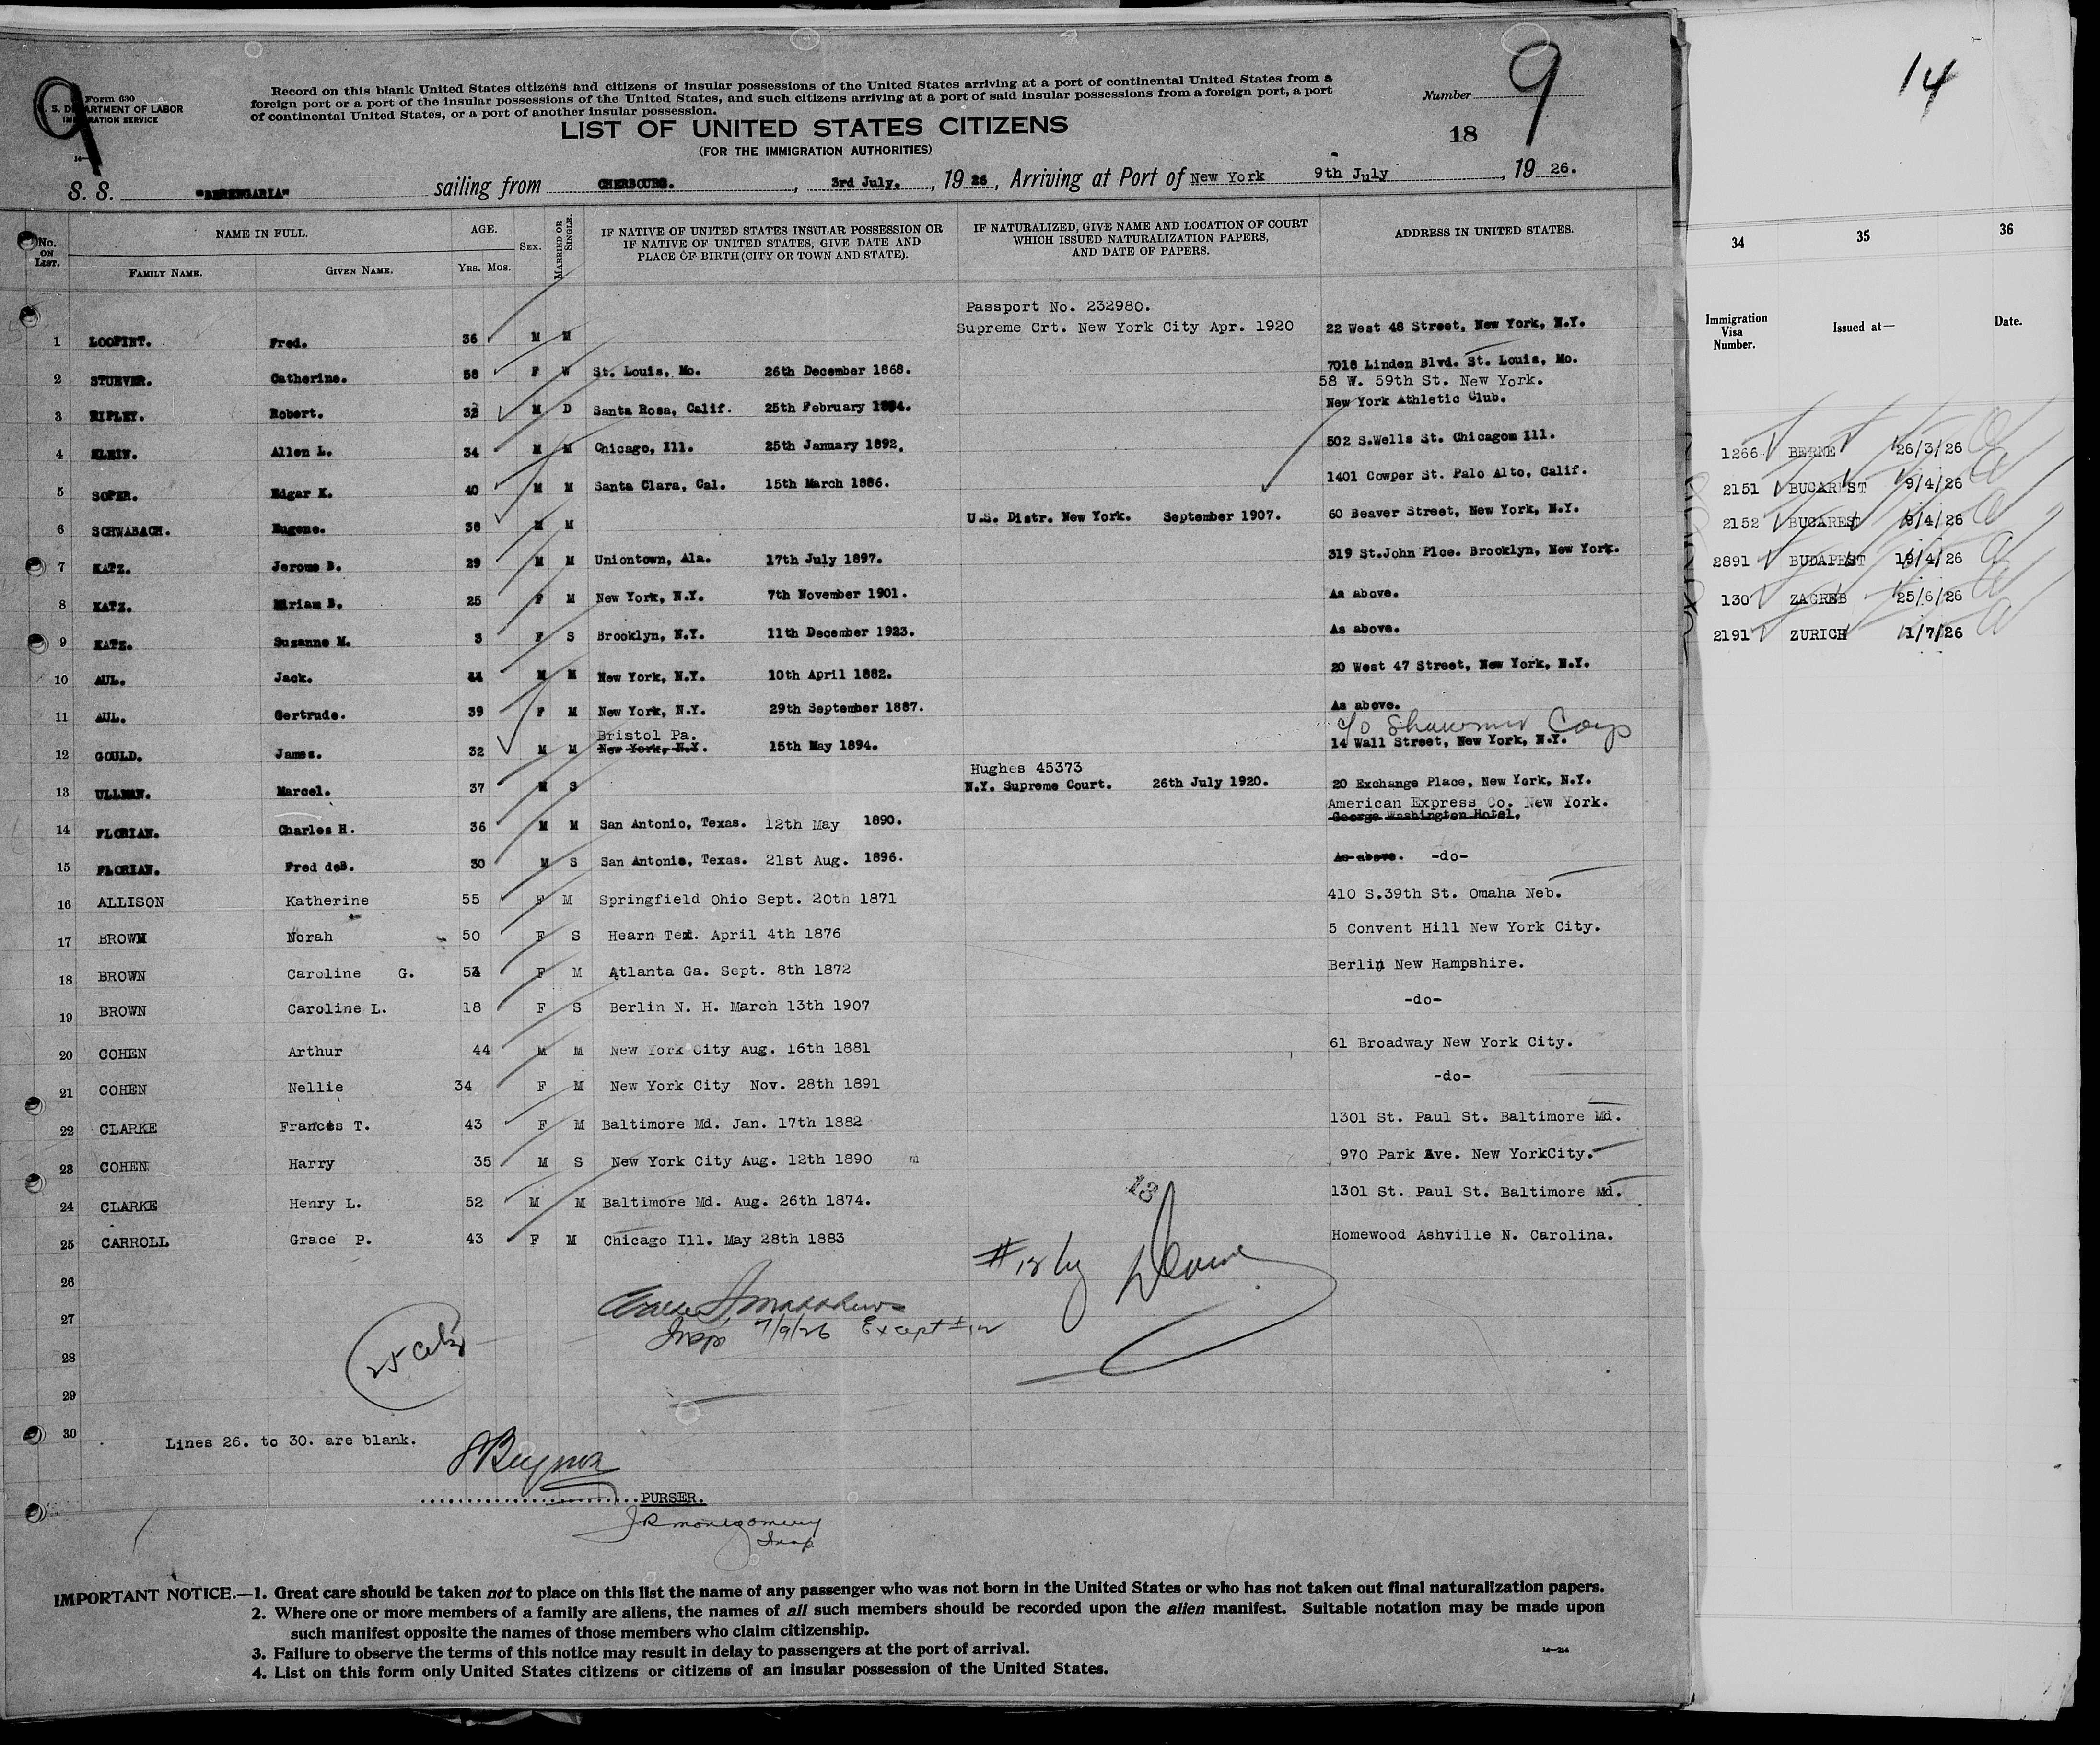 9
Form 630
U. S. DEPARTMENT OF LABOR
IMMIGRATION SERVICE
Record on this blank United States citizens and citizens of insular possessions of the United States arriving at a port of continental United States from a
foreign port or a port of the insular possessions of the United States, and such citizens arriving at a port of said insular possessions from a foreign port, a port
of continental United States, or a port of another insular possession.
Number 9
18
LIST OF UNITED STATES CITIZENS
(FOR THE IMMIGRATION AUTHORITIES)
S. S. "BERENGARIA" sailing from CHERBOURG. , 3rd July. , 19 26 , Arriving at Port of New York 9th July , 19 26.
No. ON LIST. NAME IN FULL. FAMILY NAME. GIVEN NAME. AGE. YRS. MOS. SEX. MARRIED OR SINGLE. IF NATIVE OF UNITED STATES INSULAR POSSESSION OR IF NATIVE OF UNITED STATES, GIVE DATE AND PLACE OF BIRTH (CITY OR TOWN AND STATE). IF NATURALIZED, GIVE NAME AND LOCATION OF COURT WHICH ISSUED NATURALIZATION PAPERS, AND DATE OF PAPERS. ADDRESS IN UNITED STATES.
Passport No. 232980.
1 Fred. 36 M M Supreme Crt. New York City Apr. 1920 22 West 48 Street, New York, N.Y.
2 STUEVER. Catherine. 58 F W St. Louis, Mo. 26th December 1868. 7018 Linden Blvd. St. Louis, Mo.
58 W. 59th St. New York.
3 RIPLEY. Robert. 32 M D Santa Rosa, Calif. 25th February 1894. New York Athletic Club.
4 KLEIN. Allen L. 34 M M Chicago, Ill. 25th January 1892. 502 S.Wells St. Chicagom Ill.
5 SOPER. Edgar K. 40 M M Santa Clara, Cal. 15th March 1886. 1401 Cowper St. Palo Alto, Calif.
6 SCHWABACH. Eugene. 38 M M U.S. Distr. New York. September 1907. 60 Beaver Street, New York, N.Y.
7 KATZ. Jerome B. 29 M M Uniontown, Ala. 17th July 1897. 319 St.John Plce. Brooklyn, New York.
8 KATZ. Miriam B. 25 F M New York, N.Y. 7th November 1901. As above.
9 KATZ. Suzanne M. 3 F S Brooklyn, N.Y. 11th December 1923. As above.
10 AUL. Jack. 44 M M New York, N.Y. 10th April 1882. 20 West 47 Street, New York, N.Y.
11 AUL. Gertrude. 39 F M New York, N.Y. 29th September 1887. As above.
Bristol Pa. c/o Corp
12 GOULD. James. 32 M M New York, N.Y. 15th May 1894. 14 Wall Street, New York, N.Y.
Hughes 45373
13 ULLMAN. Marcel. 37 M S N.Y. Supreme Court. 26th July 1920. 20 Exchange Place, New York, N.Y.
American Express Co. New York.
14 FLORIAN. Charles H. 36 M M San Antonio, Texas. 12th May 1890. George Washington Hotel.
15 FLORIAN. Fred deB. 30 M S San Antonio, Texas. 21st Aug. 1896. As above. -do-
16 ALLISON Katherine 55 F M Springfield Ohio Sept. 20th 1871 410 S.39th St. Omaha Neb.
17 BROWN Norah 50 F S Hearn Tex. April 4th 1876 5 Convent Hill New York City.
18 BROWN Caroline G. F M Atlanta Ga. Sept. 8th 1872 Berlin New Hampshire.
19 BROWN Caroline L. 18 F S Berlin N. H. March 13th 1907 -do-
20 COHEN Arthur 44 M M New York City Aug. 16th 1881 61 Broadway New York City.
21 COHEN Nellie 34 F M New York City Nov. 28th 1891 -do-
22 CLARKE Frances T. 43 F M Baltimore Md. Jan. 17th 1882 1301 St. Paul St. Baltimore Md.
23 COHEN Harry 35 M S New York City Aug. 12th 1890 m 970 Park Ave. New YorkCity.
24 CLARKE Henry L. 52 M M Baltimore Md. Aug. 26th 1874. 1301 St. Paul St. Baltimore Md.
25 CARROLL Grace P. 43 F M Chicago Ill. May 28th 1883 Homewood Ashville N. Carolina.
13
26
27 Matthews
Insp 7/9/26 Except #12
28
29
30
Lines 26. to 30. are blank.
PURSER.
JR Montgomery
Insp
IMPORTANT NOTICE.—1. Great care should be taken not to place on this list the name of any passenger who was not born in the United States or who has not taken out final naturalization papers.
2. Where one or more members of a family are aliens, the names of all such members should be recorded upon the alien manifest. Suitable notation may be made upon
such manifest opposite the names of those members who claim citizenship.
3. Failure to observe the terms of this notice may result in delay to passengers at the port of arrival.
4. List on this form only United States citizens or citizens of an insular possession of the United States.
14—214
14
34 35 36
Immigration Visa Number. Issued at— Date.
1266 BERNE 26/3/26
2151 BUCAREST 9/4/26
2152 BUCAREST 9/4/26
2891 BUDAPEST 19/4/26
130 ZAGREB 25/6/26
2191 ZURICH 1/7/26